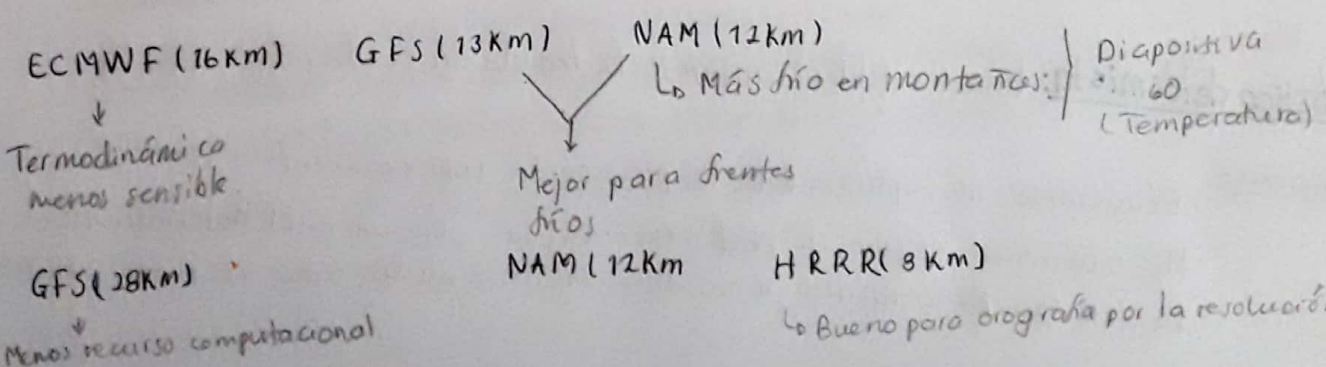 ECMWF (16Km) GFS (13Km) NAM (12Km)
↳ Más frío en montañas:
Diapositiva
60
(Temperatura)
↓
Termodinámico
menos sensible
Mejor para frentes
fríos
GFS (28Km) NAM (12Km HRRR (3Km)
↓
Menos recurso computacional
↳ Bueno para orografía por la resolució